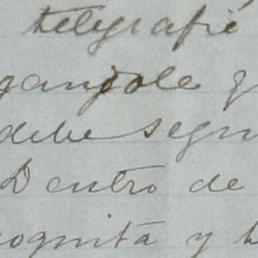 telegrafié
gandole q
debe segu
Dentro de
cognita y